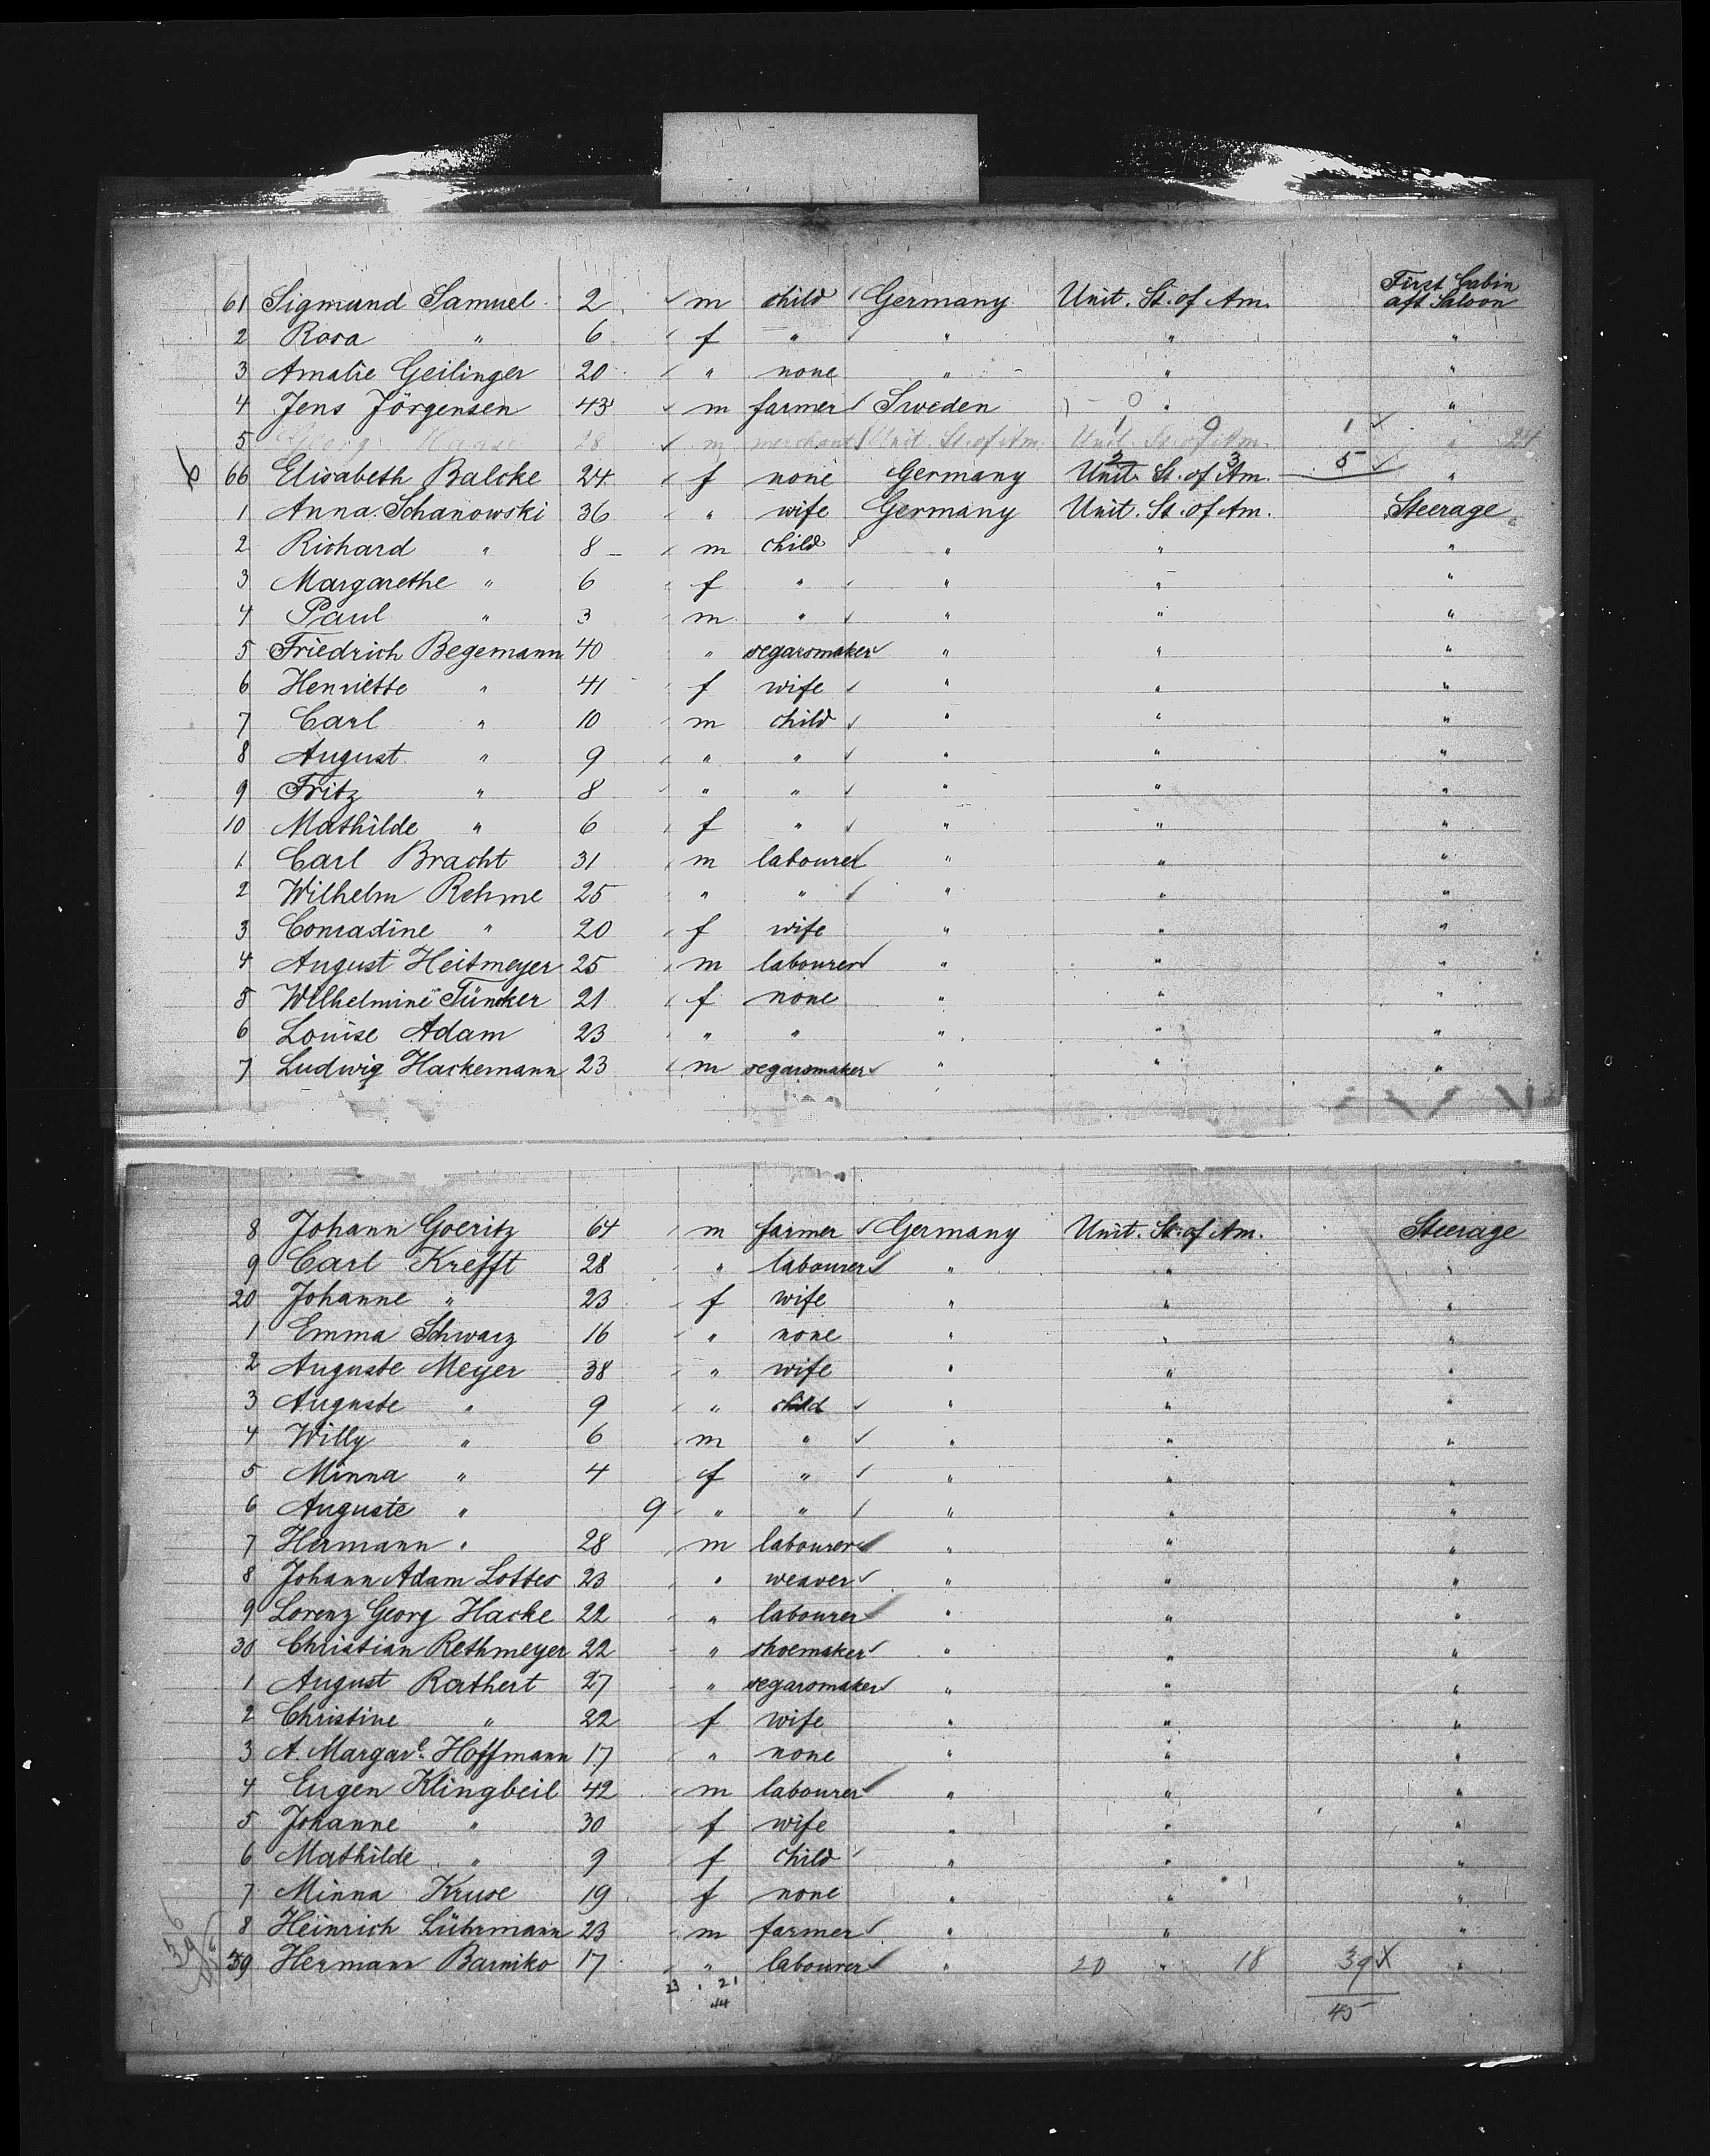 First Cabin
61 Sigmund Samuel 2 m child Germany Unit. St. of Am. aft Saloon
2 Rosa " 6 f " " " "
3 Amalie Geilinger 20 " none " " "
4 Jens Jörgensen 43 m farmer Sweden 0 " "
5 Georg 28 m merchant Unit. St. of Am. Unit. St. of Am. 1 " 24
6 66 Elisabeth Balcke 24 f none Germany Unit. St. of Am. 5 "
1 Anna Schanowski 36 " wife Germany Unit. St. of Am. Steerage
2 Richard " 8 m child " " "
3 Margarethe " 6 f " " " "
4 Paul " 3 m " " " "
5 Friedrich Begemann 40 " segarsmaker " " "
6 Henriette " 41 f wife " " "
7 Carl " 10 m child " " "
8 August " 9 " " " " "
9 Fritz " 8 " " " " "
10 Mathilde " 6 f " " " "
1 Carl Bracht 31 m labourer " " "
2 Wilhelm Rehme 25 " " " " "
3 Conradine " 20 f wife " " "
4 August Heitmeyer 25 m labourer " " "
5 Wilhelmine Tüncker 21 f none " " "
6 Louise Adam 23 " " " " "
7 Ludwig Hackemann 23 m segarsmaker " " "
8 Johann Goeritz 64 m farmer Germany Unit. St. of Am. Steerage
9 Carl Krefft 28 " labourer " " "
20 Johanne " 23 f wife " " "
1 Emma Schwarz 16 " none " " "
2 Auguste Meyer 38 " wife " " "
3 Auguste " 9 " child " " "
4 Willy " 6 m " " " "
5 Minna " 4 f " " " "
6 Auguste " 9 " " " " "
7 Hermann " 28 m labourer " " "
8 Johann Adam Lottes 23 " weaver " " "
9 Lorenz Georg Hacke 22 " labourer " " "
30 Christian Rethmeyer 22 " shoemaker " " "
1 August Rathert 27 " segarsmaker " " "
2 Christine " 22 f wife " " "
3 A. Margar.e Hoffmann 17 " none " " "
4 Eugen Klingbeil 42 m labourer " " "
5 Johanne " 30 f wife " " "
6 Mathilde " 9 f child " " "
7 Minna Kruse 19 f none " " "
8 Heinrich Lührmann 23 m farmer " " "
39 Hermann Barniko 17 " labourer " 20 " 18 39 "
23 21
44 45